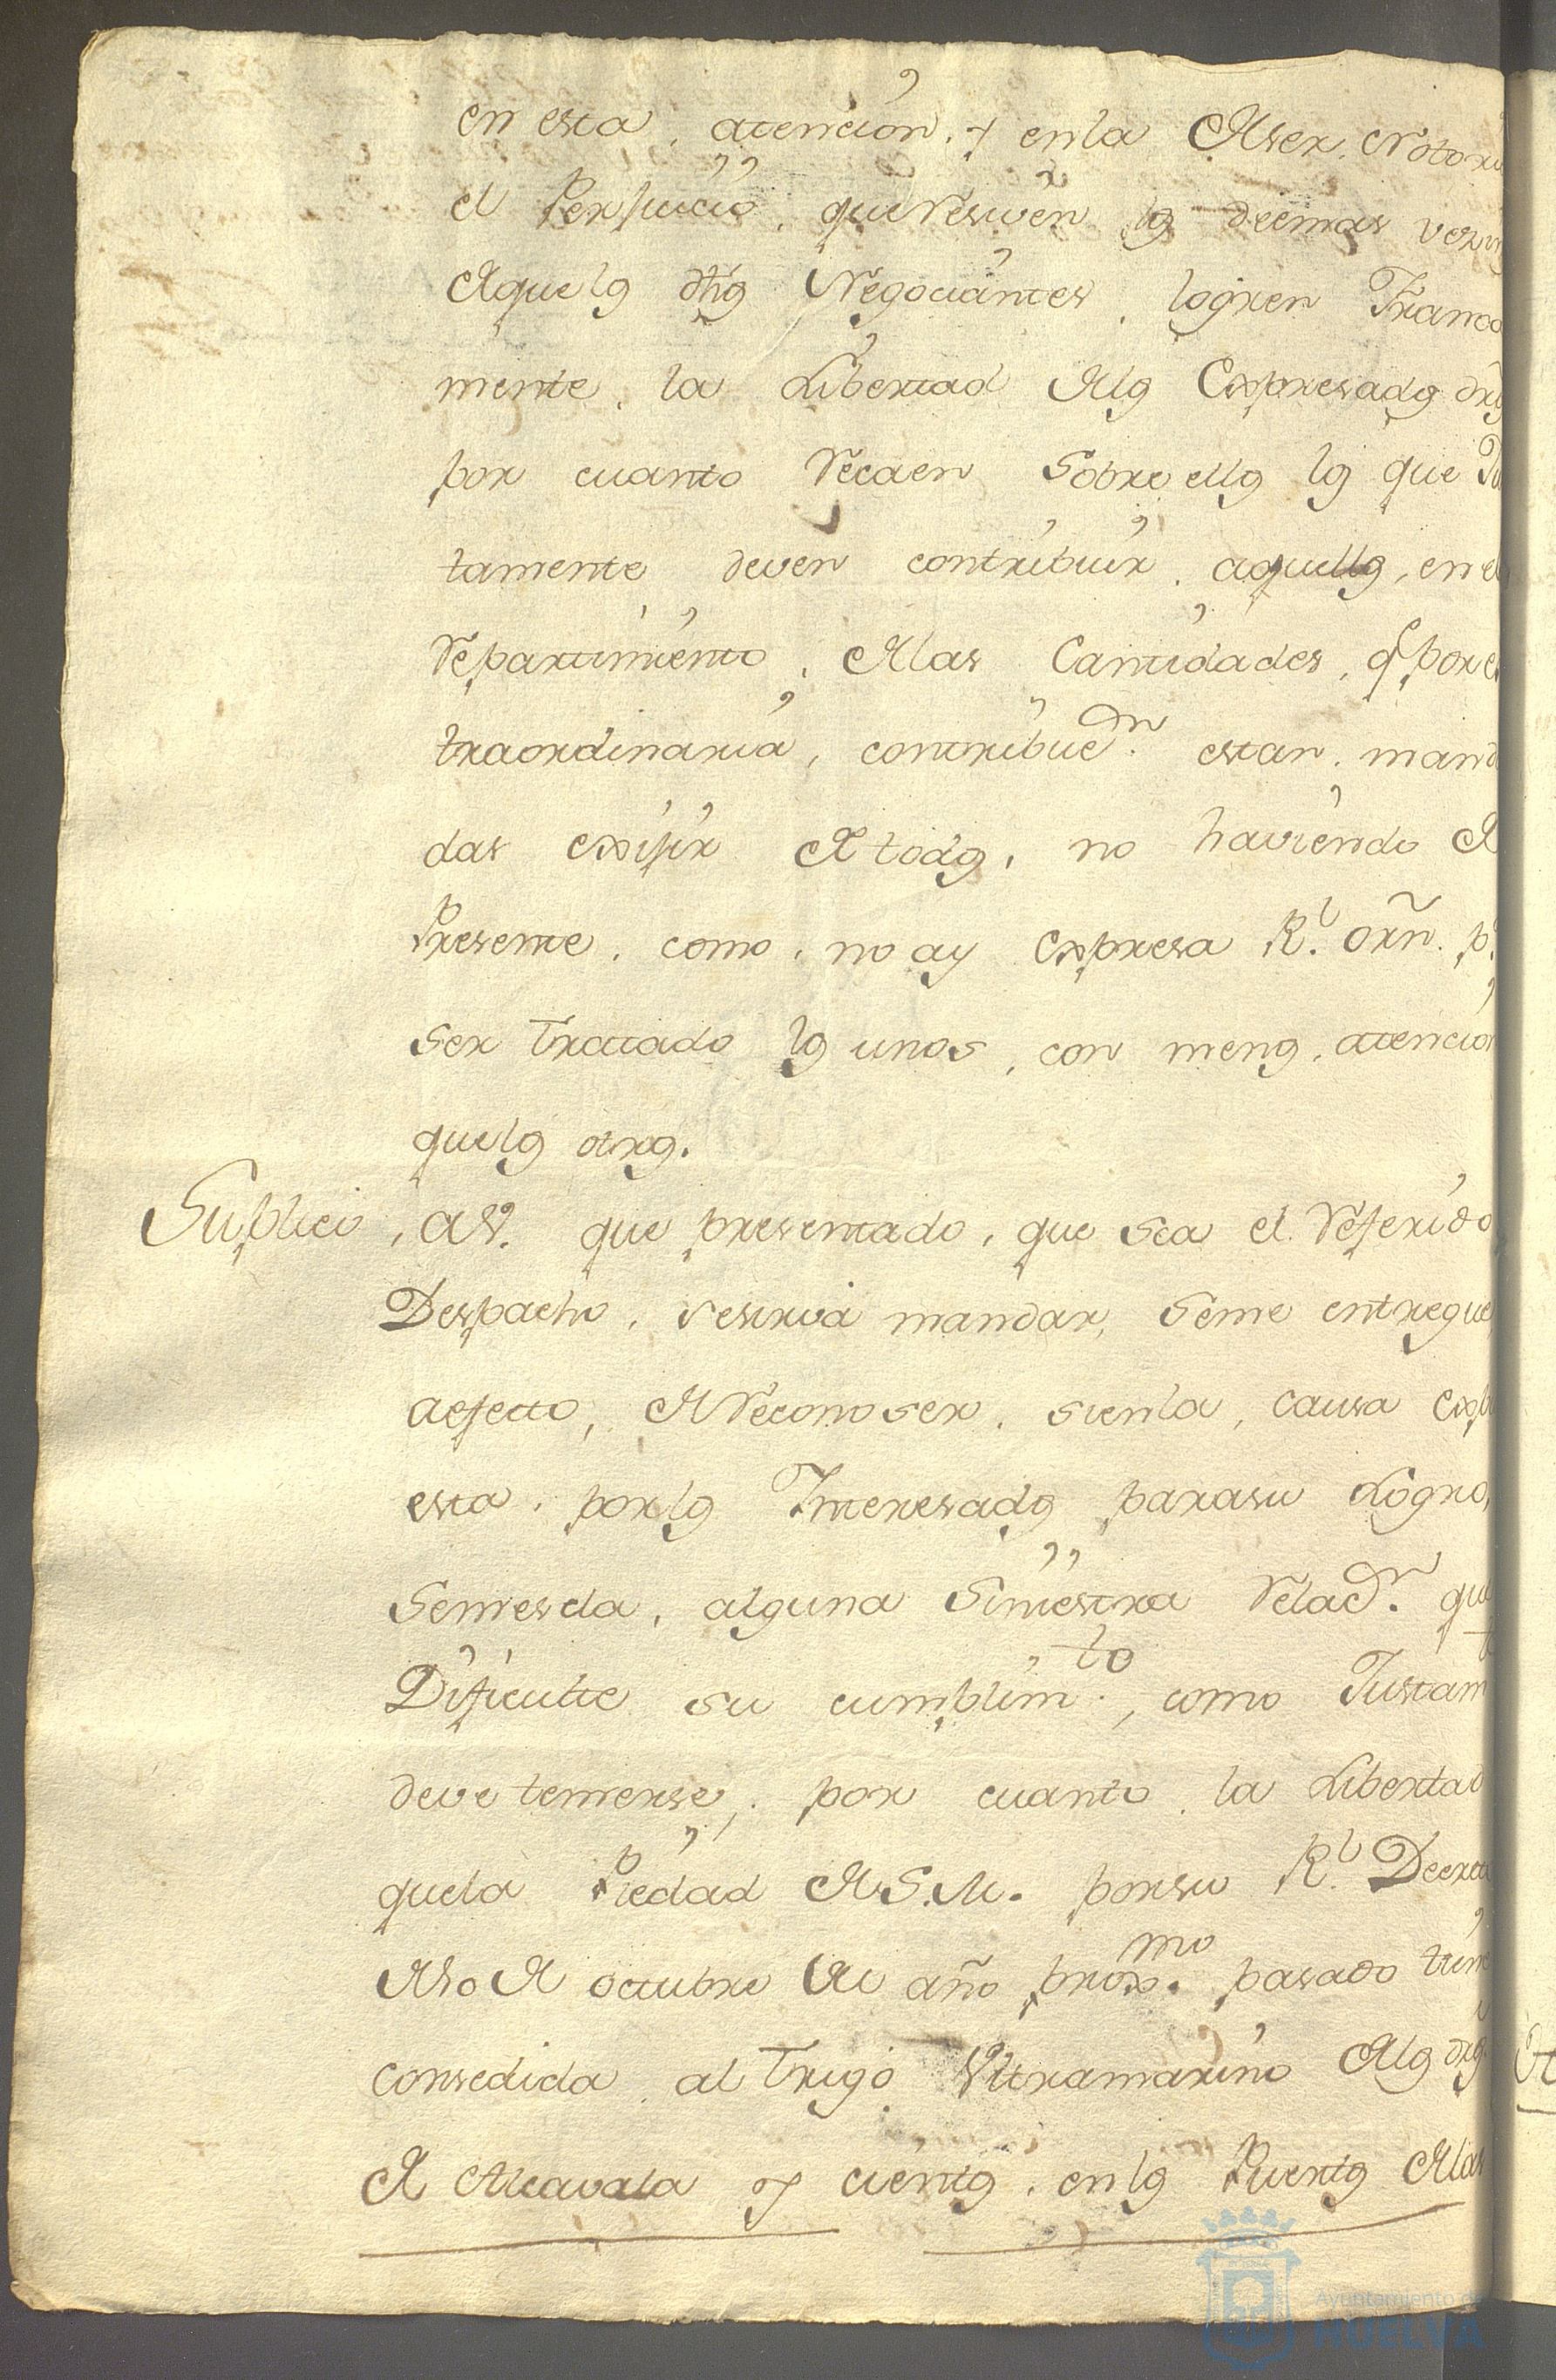 en esta, atención. y enla de ser Notorio
el Perjuicio, que resiven los deemas vezin
de quelos dhos Negociantes, logren Franca
mente, la Libertad de los Expresados dros
por cuanto recaen sobre ellos los que Jus
tamente deven contribuir aquellos, en el
repartimiento, de las Cantidades, q por ex
traordinaria, contribuc.on estan. manda
das exijir a todos, no haviendo de
Presente, como, no ay expresa R.l orñ. p.a
ser tratado los unos, con menos, atención
quelos otros.
Suplico, a V. que presentado, que sea el referido
Despacho, sesirva mandar, seme entregue,
aefecto, de reconoser, sienla, causa exp
esta, porlos Interesados parasu Logro,
semescla, alguna siniestra relac.on que
Dificulte su cumplim.to, como Justam.te
deve temerse, por cuanto, la Libertad
quela Piedad de S. M. porsu R.l Decreto
de 10 de octubre del año prox.mo pasado tiene
consedida, al trigo Ultramarino de los dros
de Alcavala y cientos, enlos Puertos de las
Ayuntamiento de
HUELVA